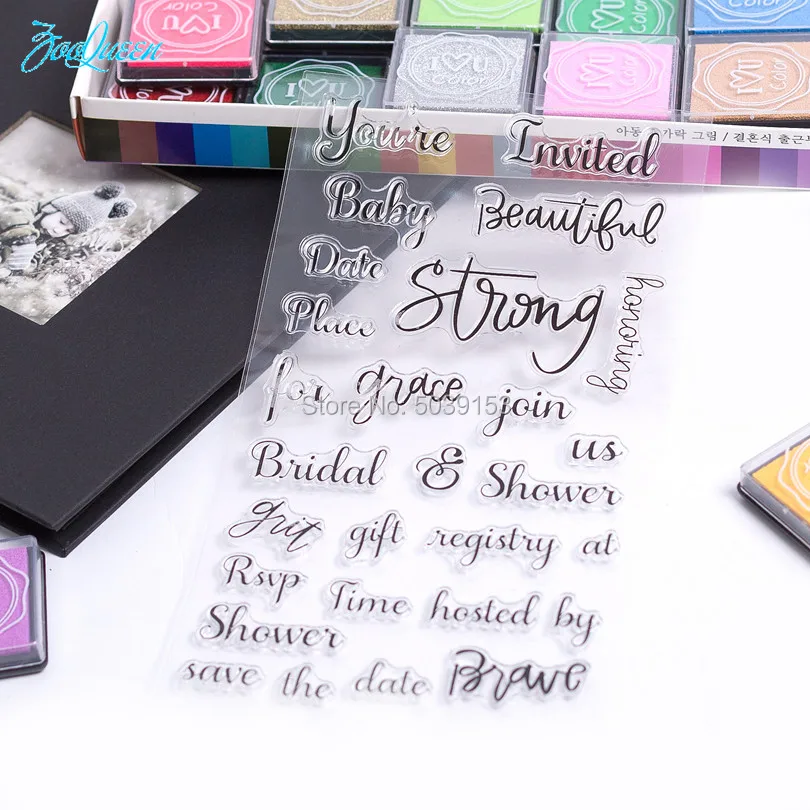 ZooQueen
I U
Color
I U
Color
I U
Color
I U
Color
I U
Color
Color
Color
You're Invited
Baby Beautiful
Date
Strong
honoring
Place
for grace join
Store No. 5039153
us
Bridal & Shower
grit gift registry at
Rsvp Time hosted by
Shower
save the date Brave